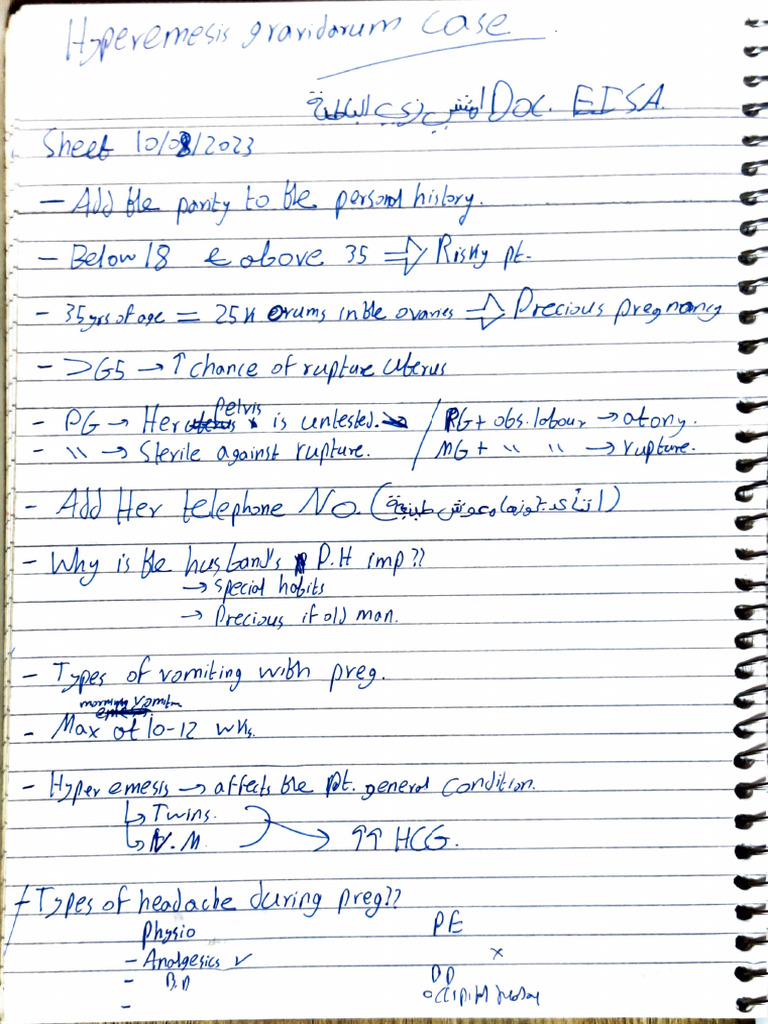 Hyperemesis gravidarum case
Doc. EISA.
Sheet 10/08/2023
- Add the parity to the personal history.
- Below 18 & above 35 ⇒ Risky pt.
- 35yrs of age = 25K ovums in the ovaries ⇒ Precious pregnancy
- >G5 → ↑ chance of rupture uterus
- PG → Her pelvis is untested. / PG + obs. labour → atony.
- \\ → Sterile against rupture. / MG + \\ \\ → rupture.
- Add Her telephone No.
- Why is the husband's P.H imp??
→ special habits
→ Precious if old man.
- Types of vomiting with preg.
morning vomitn
- Max at 10-12 wks.
- Hyper emesis → affects the pt. general condition.
↳ Twins.
↳ V.M → ↑↑ HCG.
- Types of headache during preg??
Physio PE
- Analgesics ✓ x
- B.P
- occipital